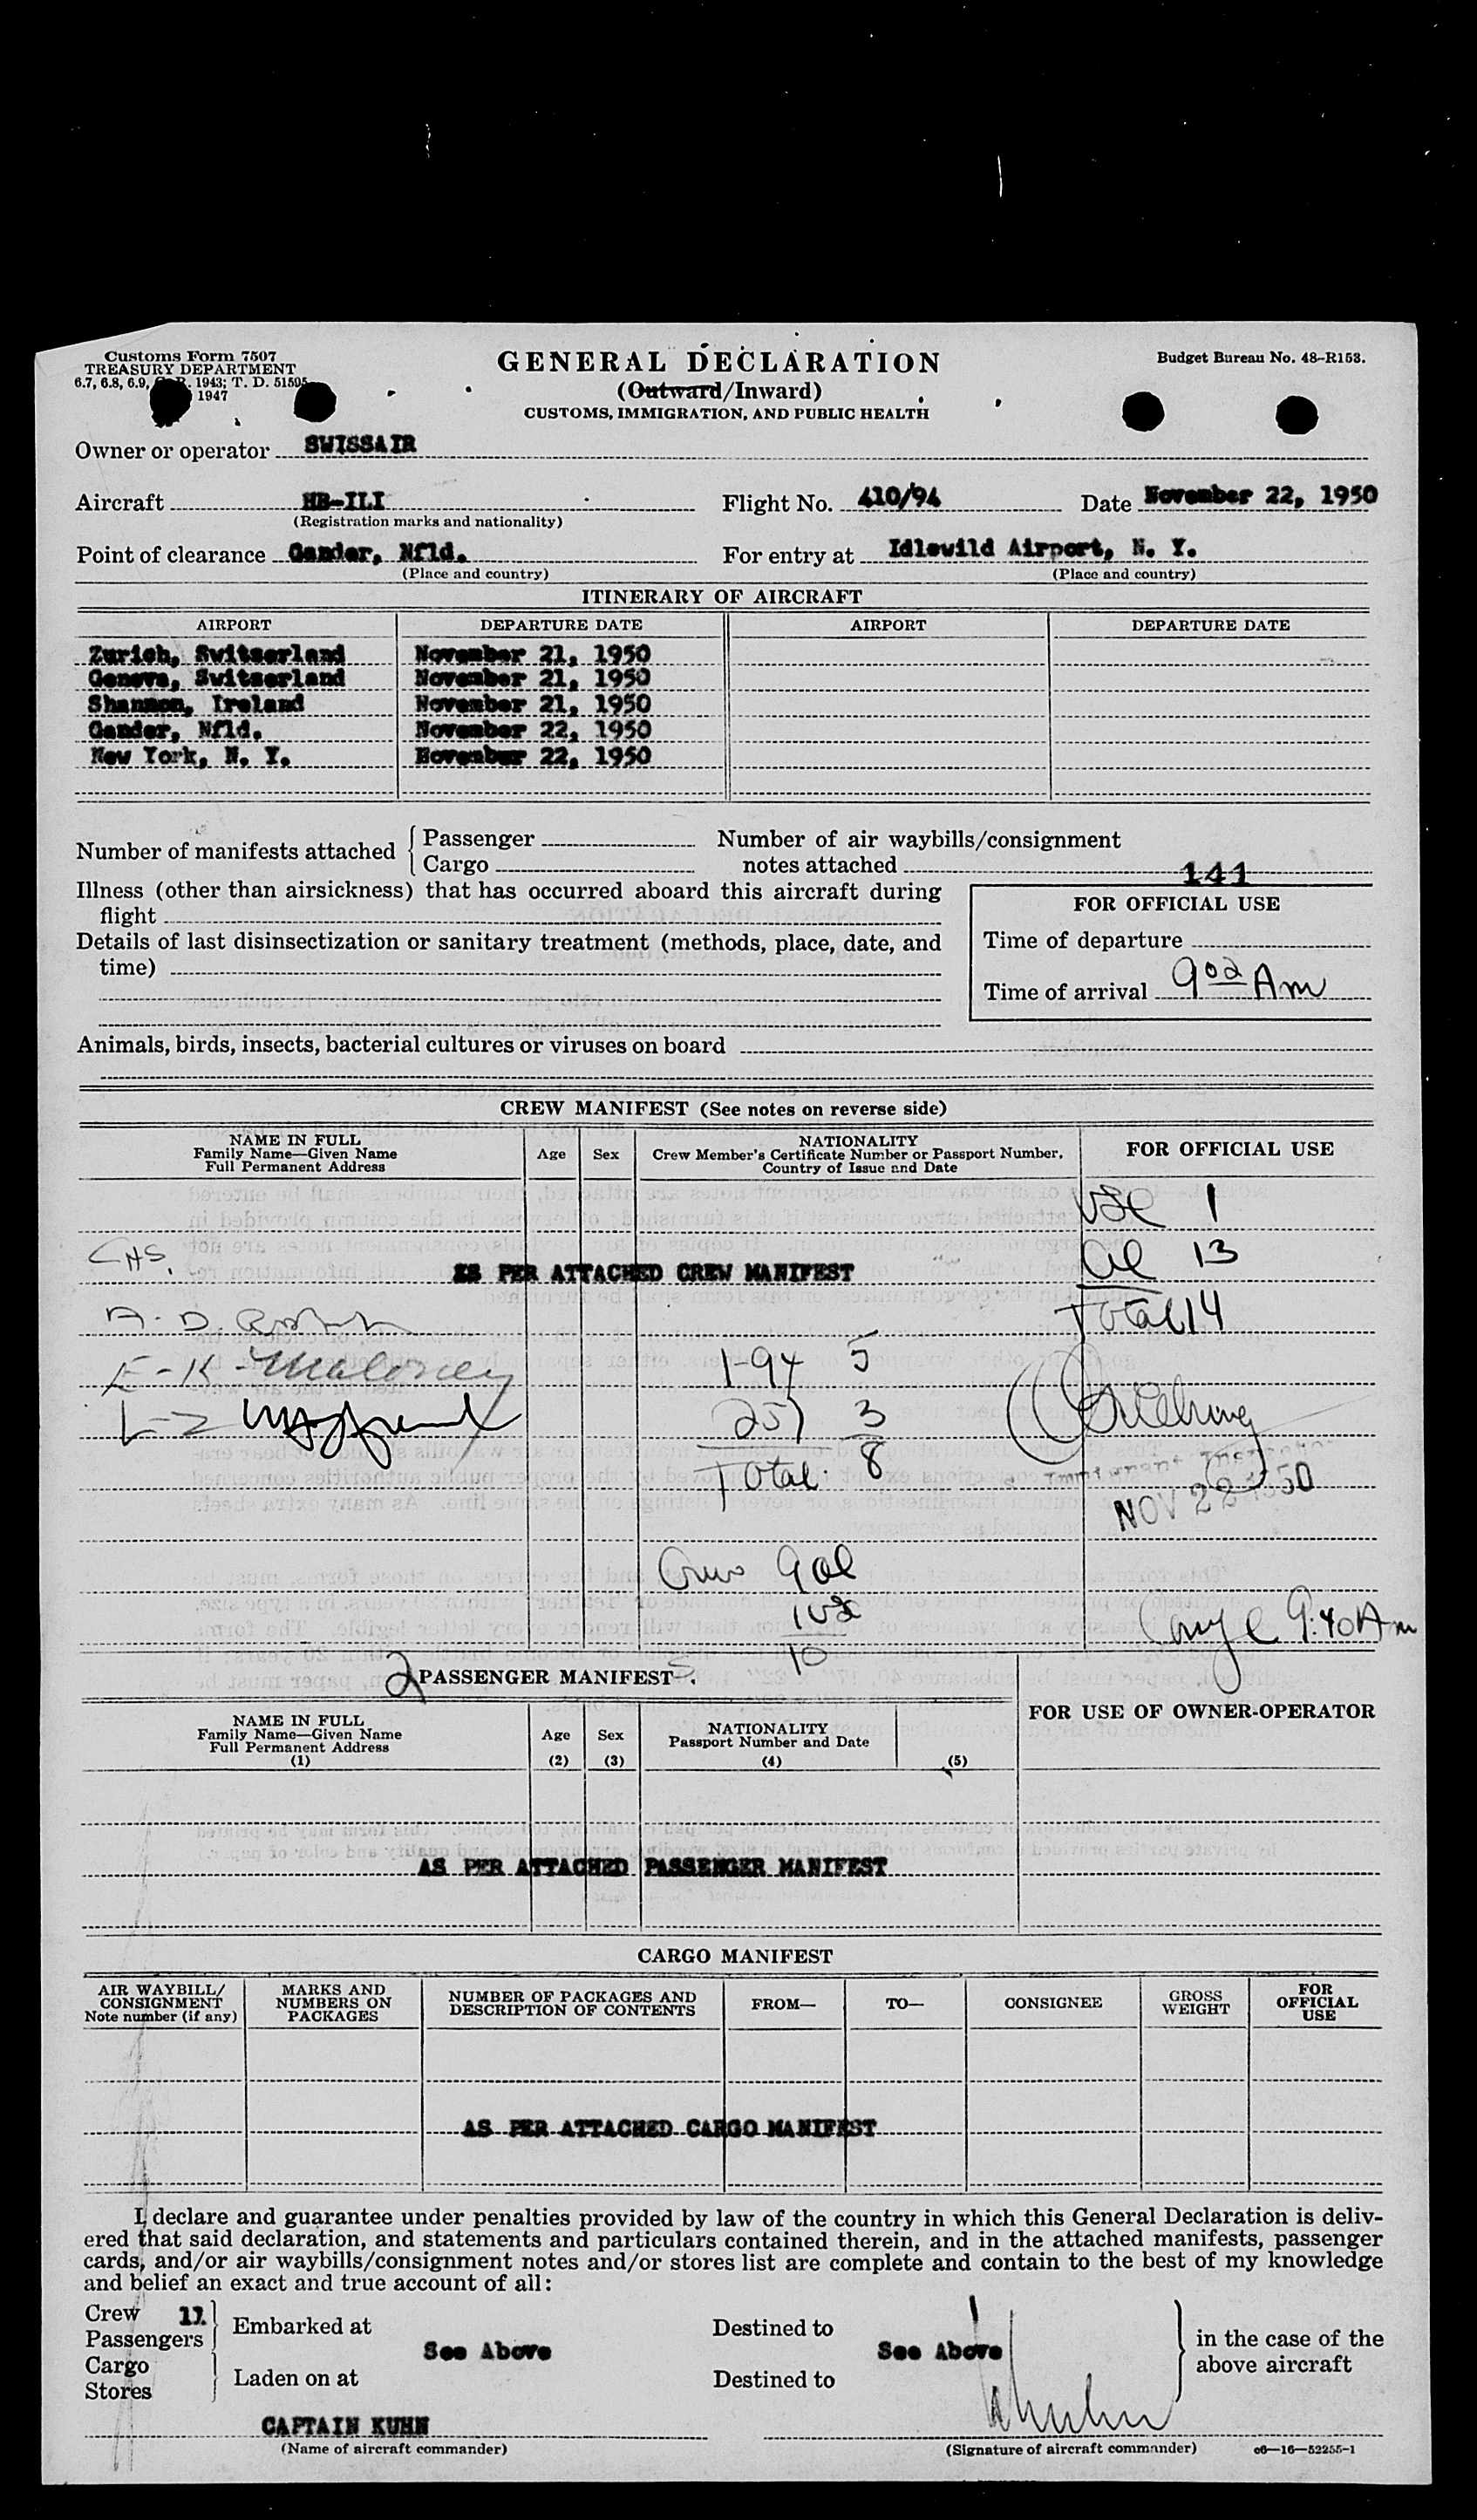 Customs Form 7507
TREASURY DEPARTMENT
6.7, 6.8, 6.9, 1943; T. D. 51595
1947
GENERAL DECLARATION
(Outward/Inward)
CUSTOMS, IMMIGRATION, AND PUBLIC HEALTH
Budget Bureau No. 48-R153.
Owner or operator SWISSAIR
Aircraft HB-ILI Flight No. 410/94 Date November 22, 1950
(Registration marks and nationality)
Point of clearance Gander, Nfld. For entry at Idlewild Airport, N. Y.
(Place and country) (Place and country)
ITINERARY OF AIRCRAFT
AIRPORT DEPARTURE DATE AIRPORT DEPARTURE DATE
Zurich, Switzerland November 21, 1950
Geneva, Switzerland November 21, 1950
Shannon, Ireland November 21, 1950
Gander, Nfld. November 22, 1950
New York, N. Y. November 22, 1950
Number of manifests attached { Passenger
Cargo
Number of air waybills/consignment
notes attached 141
Illness (other than airsickness) that has occurred aboard this aircraft during
flight
Details of last disinsectization or sanitary treatment (methods, place, date, and
time)
FOR OFFICIAL USE
Time of departure
Time of arrival 902 Am
Animals, birds, insects, bacterial cultures or viruses on board
CREW MANIFEST (See notes on reverse side)
NAME IN FULL
Family Name—Given Name
Full Permanent Address
Age
Sex
NATIONALITY
Crew Member's Certificate Number or Passport Number,
Country of Issue and Date
FOR OFFICIAL USE
USC 1
CHS.
AS PER ATTACHED CREW MANIFEST
13
Total 14
A. D.
E-K- Maloney
1-94 5
L-Z
257 3
Total 8
Immigrant Inspector
NOV 22 1950
10
9:40 Am
2 PASSENGER MANIFEST
NAME IN FULL
Family Name—Given Name
Full Permanent Address
(1)
Age
(2)
Sex
(3)
NATIONALITY
Passport Number and Date
(4)
(5)
FOR USE OF OWNER-OPERATOR
AS PER ATTACHED PASSENGER MANIFEST
CARGO MANIFEST
AIR WAYBILL/
CONSIGNMENT
Note number (if any)
MARKS AND
NUMBERS ON
PACKAGES
NUMBER OF PACKAGES AND
DESCRIPTION OF CONTENTS
FROM—
TO—
CONSIGNEE
GROSS
WEIGHT
FOR
OFFICIAL
USE
AS PER ATTACHED CARGO MANIFEST
I, declare and guarantee under penalties provided by law of the country in which this General Declaration is deliv-
ered that said declaration, and statements and particulars contained therein, and in the attached manifests, passenger
cards, and/or air waybills/consignment notes and/or stores list are complete and contain to the best of my knowledge
and belief an exact and true account of all:
Crew 11
Passengers
Embarked at See Above Destined to See Above
Cargo
Stores
Laden on at Destined to
in the case of the
above aircraft
CAPTAIN KUHN
(Name of aircraft commander) (Signature of aircraft commander) c6—16—52255-1